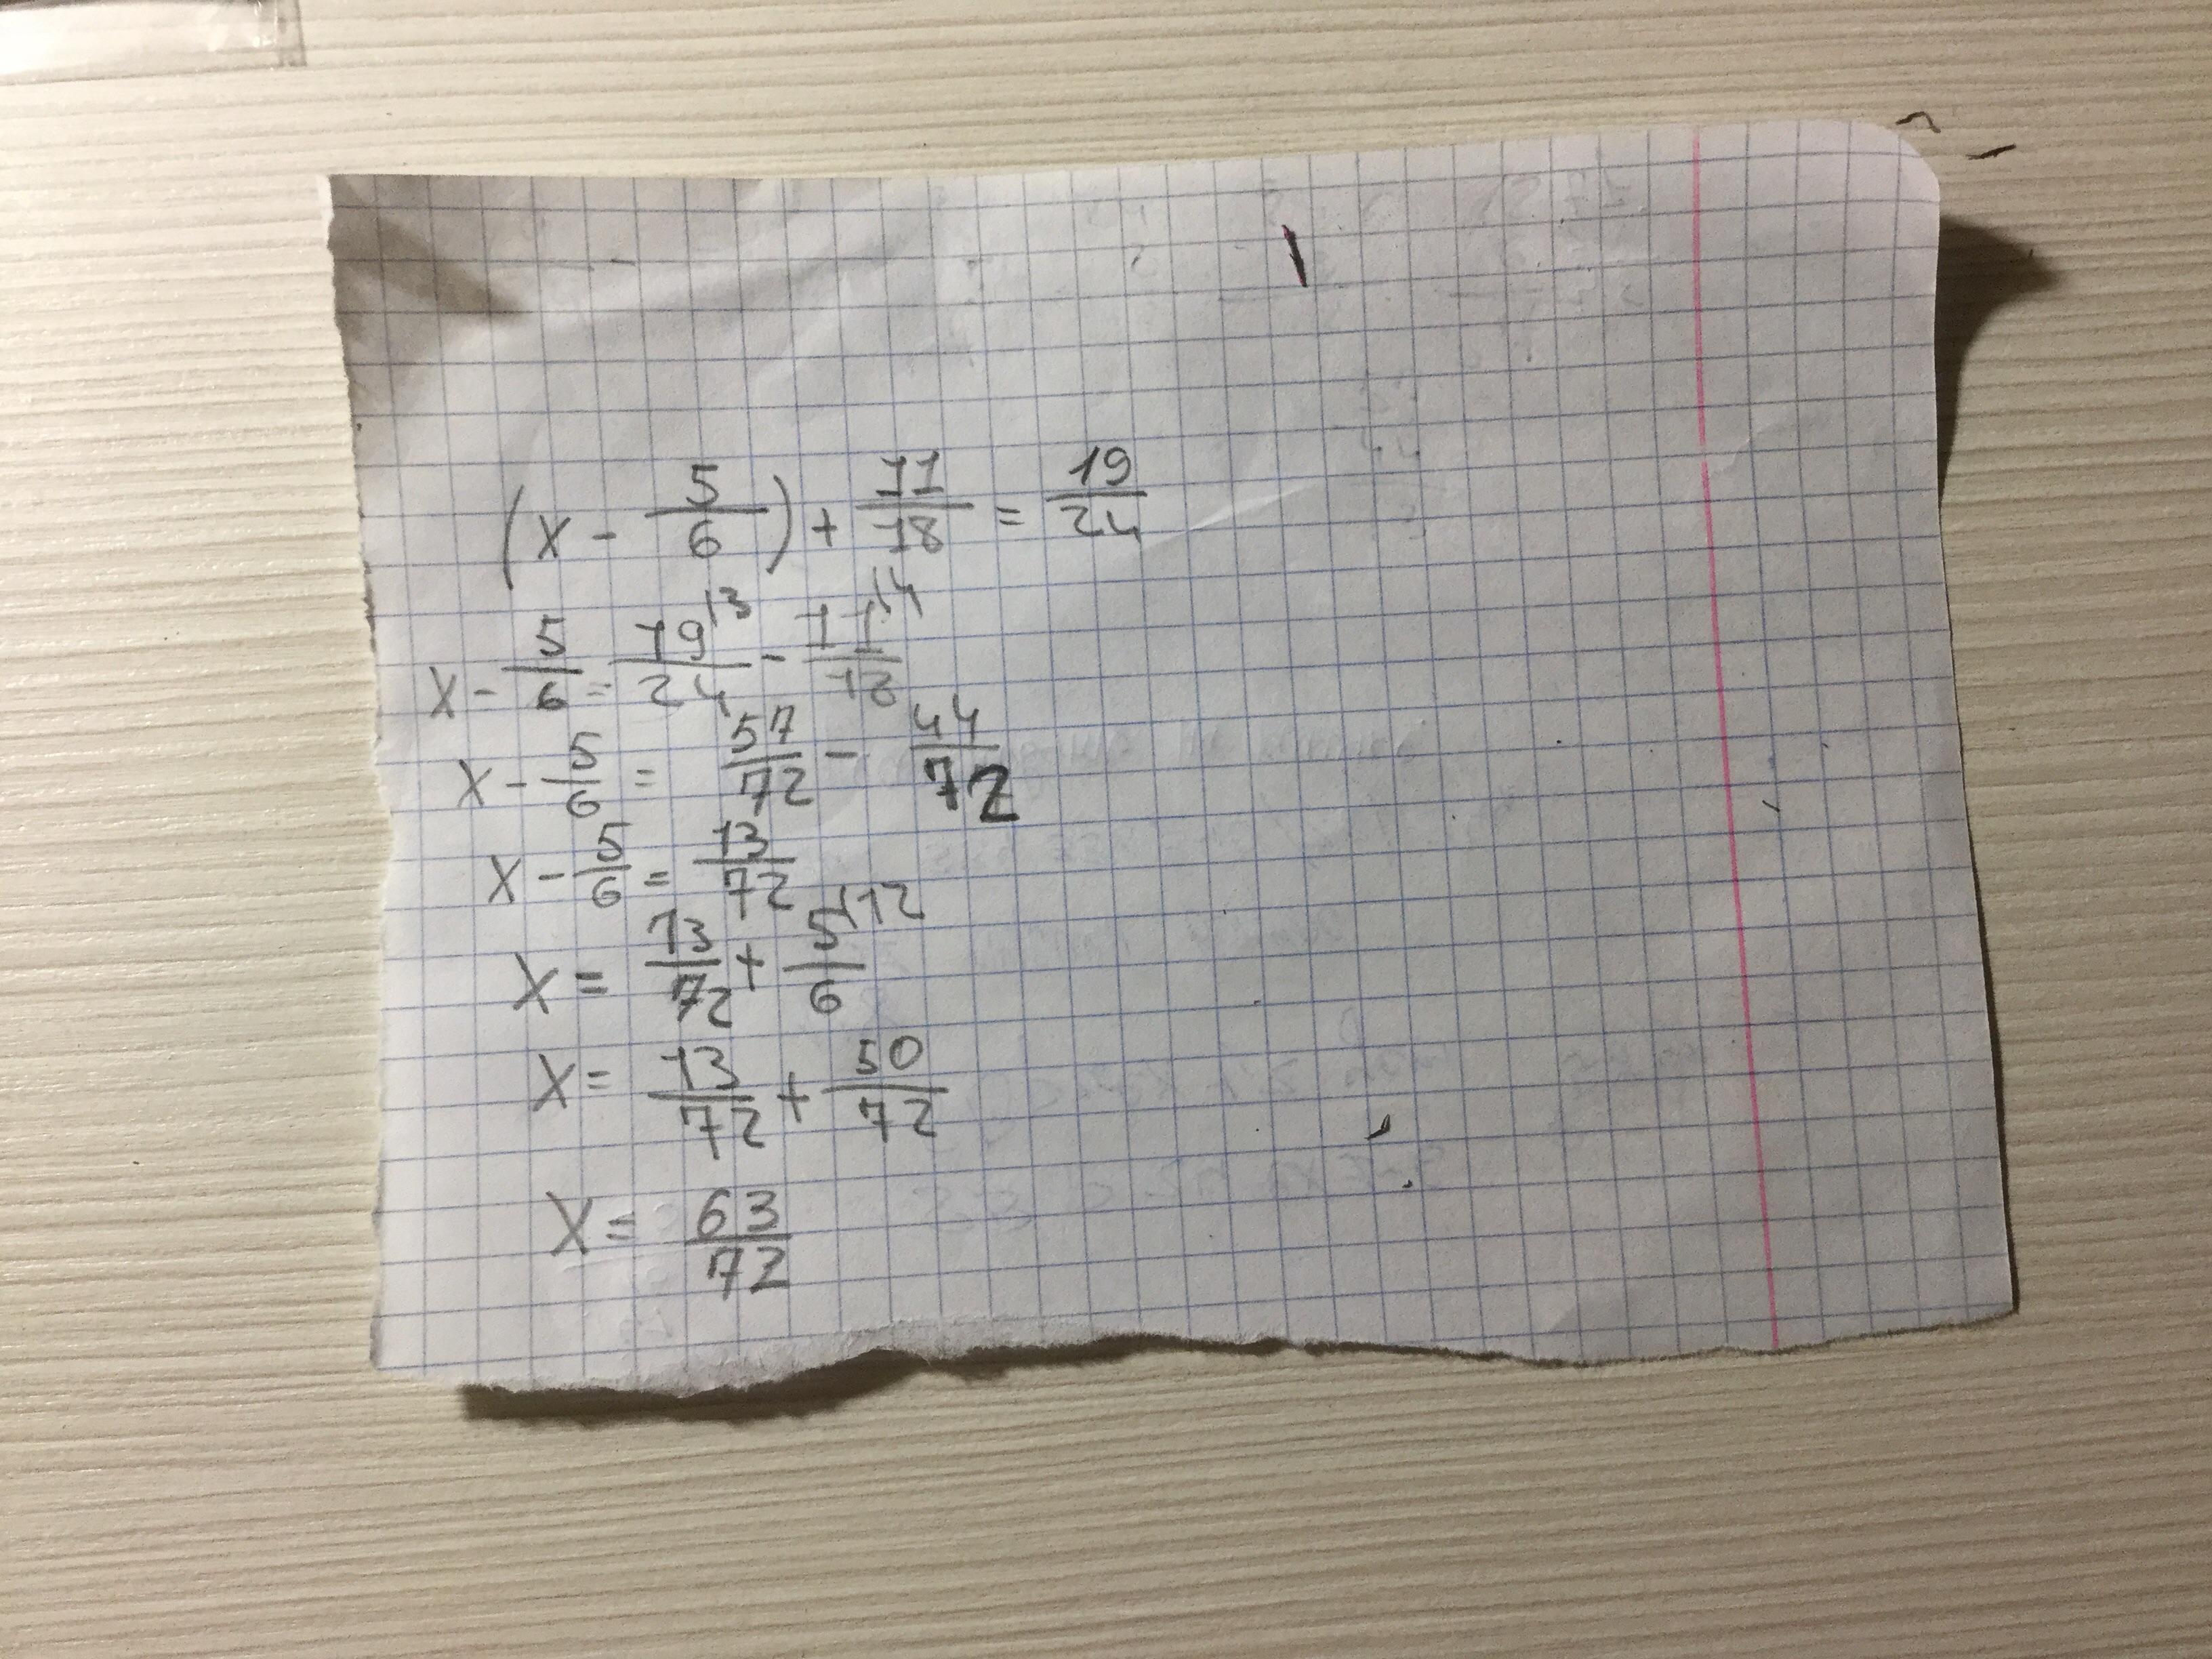 (x - 5/6) + 11/18 = 19/24
x - 5/6 = 19/24 \3 - 11/18 \4
x - 5/6 = 57/72 - 44/72
x - 5/6 = 13/72
x = 13/72 + 5/6 \12
x = 13/72 + 50/72
x = 63/72